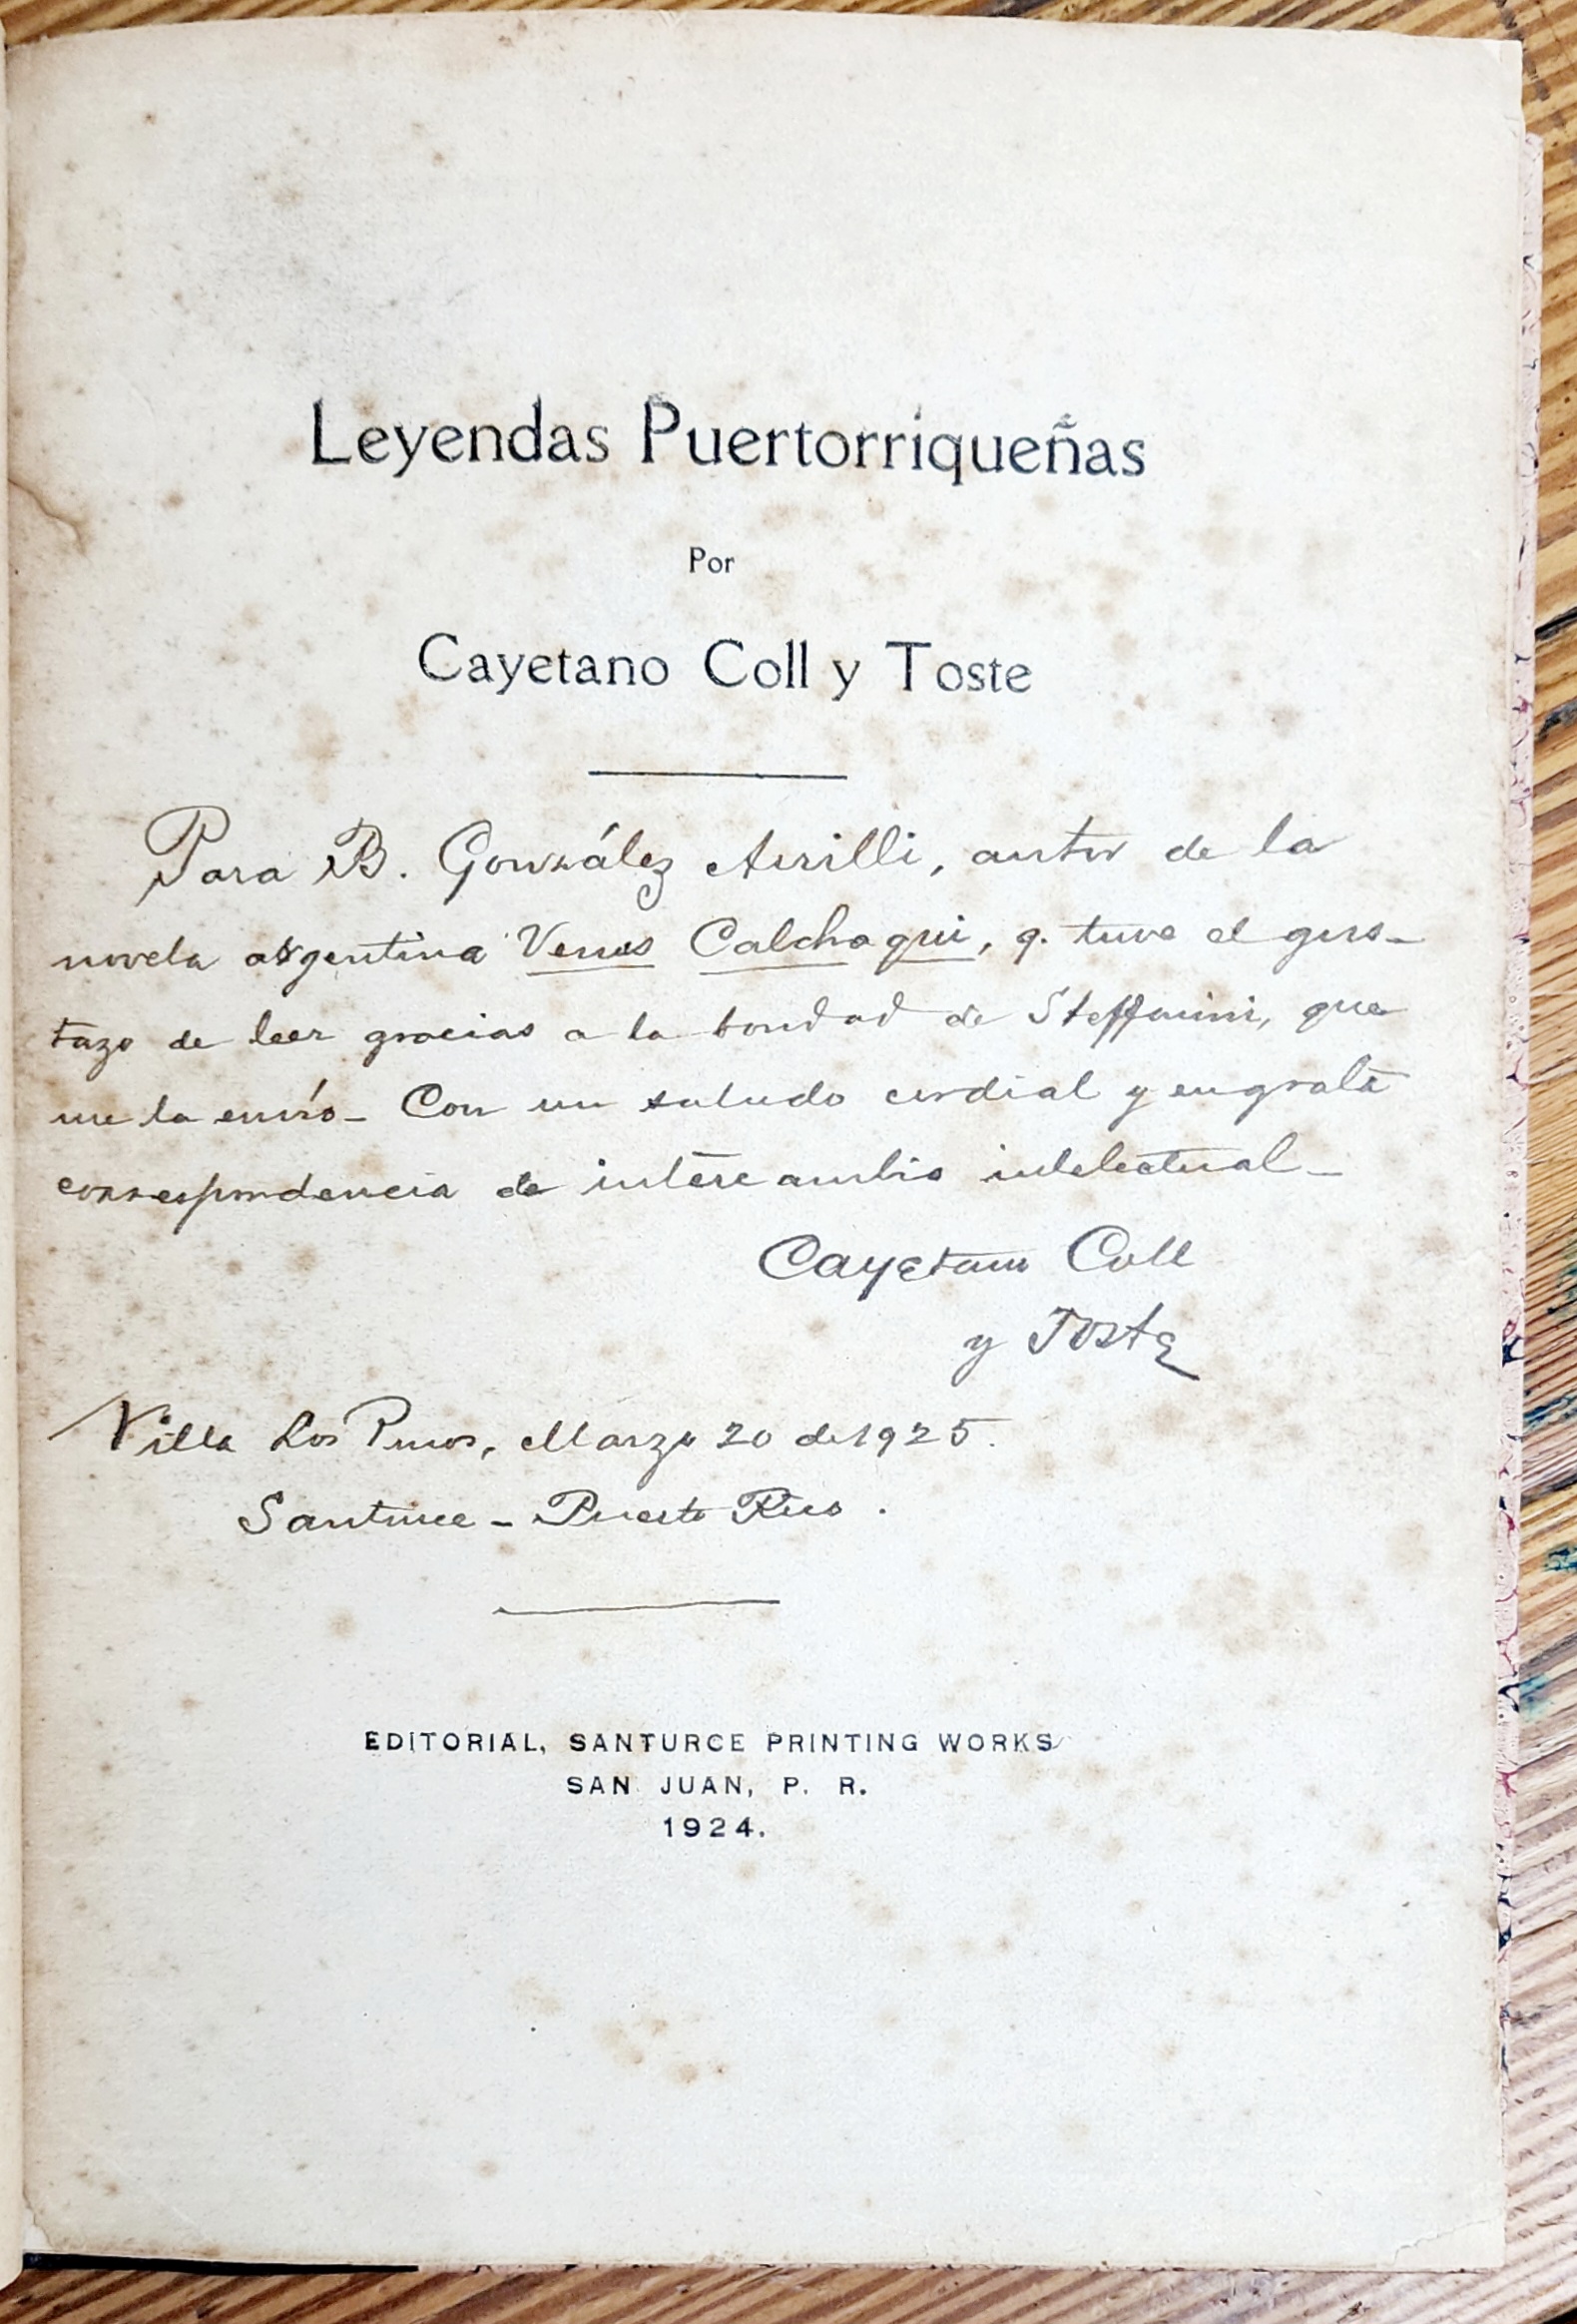 Leyendas Puertorriqueñas
Por
Cayetano Coll y Toste
Para B. González Arrilli, autor de la
novela argentina Venus Calchaqui, q. tuve el gus-
tazo de leer gracias a la bondad de Steffanini, que
me la envío- Con un saludo cordial y en grata
correspondencia de intercambio intelectual-
Cayetano Coll
y Toste
Villa Los Pinos, Marzo 20 de 1925.
Santurce - Puerto Rico.
EDITORIAL, SANTURCE PRINTING WORKS
SAN JUAN, P. R.
1924.